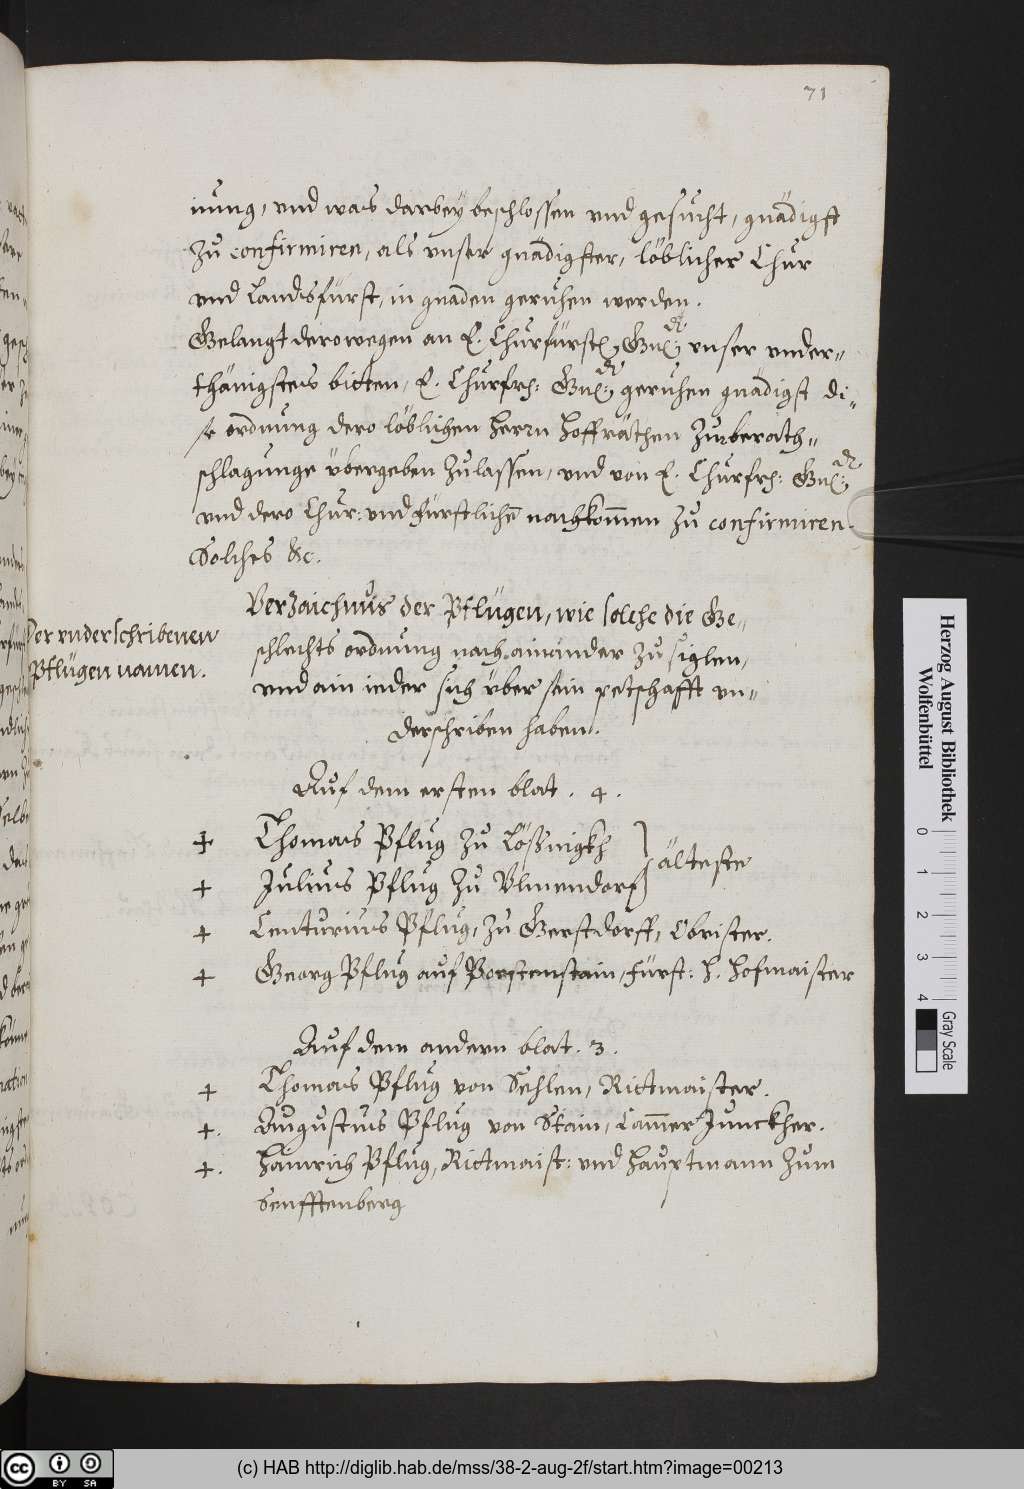 71
nung, vnd was darbey beschlossen vnd gesucht, gnädigst
zu confirmiren, als vnser gnädigster, löblicher Chur
vnd Landsfürst, in gnaden geruhen werden.
Gelangt derowegen an E. Churfürstl. Gnl. dt vnser vnder=
thänigstes bitten, E. Churfrh: Gnl: dt geruhen gnädigst di=
se ordnung dero löblichen Herrn Hoffräthen Zur berath=
schlagunge vbergeben Zulassen, vnd von E. Churfrh: Gnl: dt
vnd dero Chur: vnd Fürstlichē nachkom̄en zu confirmiren.
Solches &c.
Verzaichnus der Pflügen, wie solche die Ge=
schlechts ordnung nach ainander zu siglen,
vnd ain ieder sich vber sein petschafft vn=
derschriben haben.
Der vnderschribenen
Pflügen namen.
Auf dem ersten blat. 4.
+ Thomas Pflug zu Lößnigkh } älteste
+ Julius Pflug Zu Vlmendorf
+ Centurius Pflug, Zu Gerstdorff, Obrister.
+ Georg Pflug auf Porstenstain, Fürst: H. Hofmaister
Auf dem andern blat. 3.
+ Thomas Pflug von Sehlen, Rittmaister.
+. Augustus Pflug von Stain, Cam̄er Junckher.
+. Hainrich Pflug, Rittmaist: vnd Hauptmann Zum
Senfftenberg
Herzog August Bibliothek
Wolfenbüttel
0 1 2 3 4
Gray Scale
cc BY SA
(c) HAB http://diglib.hab.de/mss/38-2-aug-2f/start.htm?image=00213